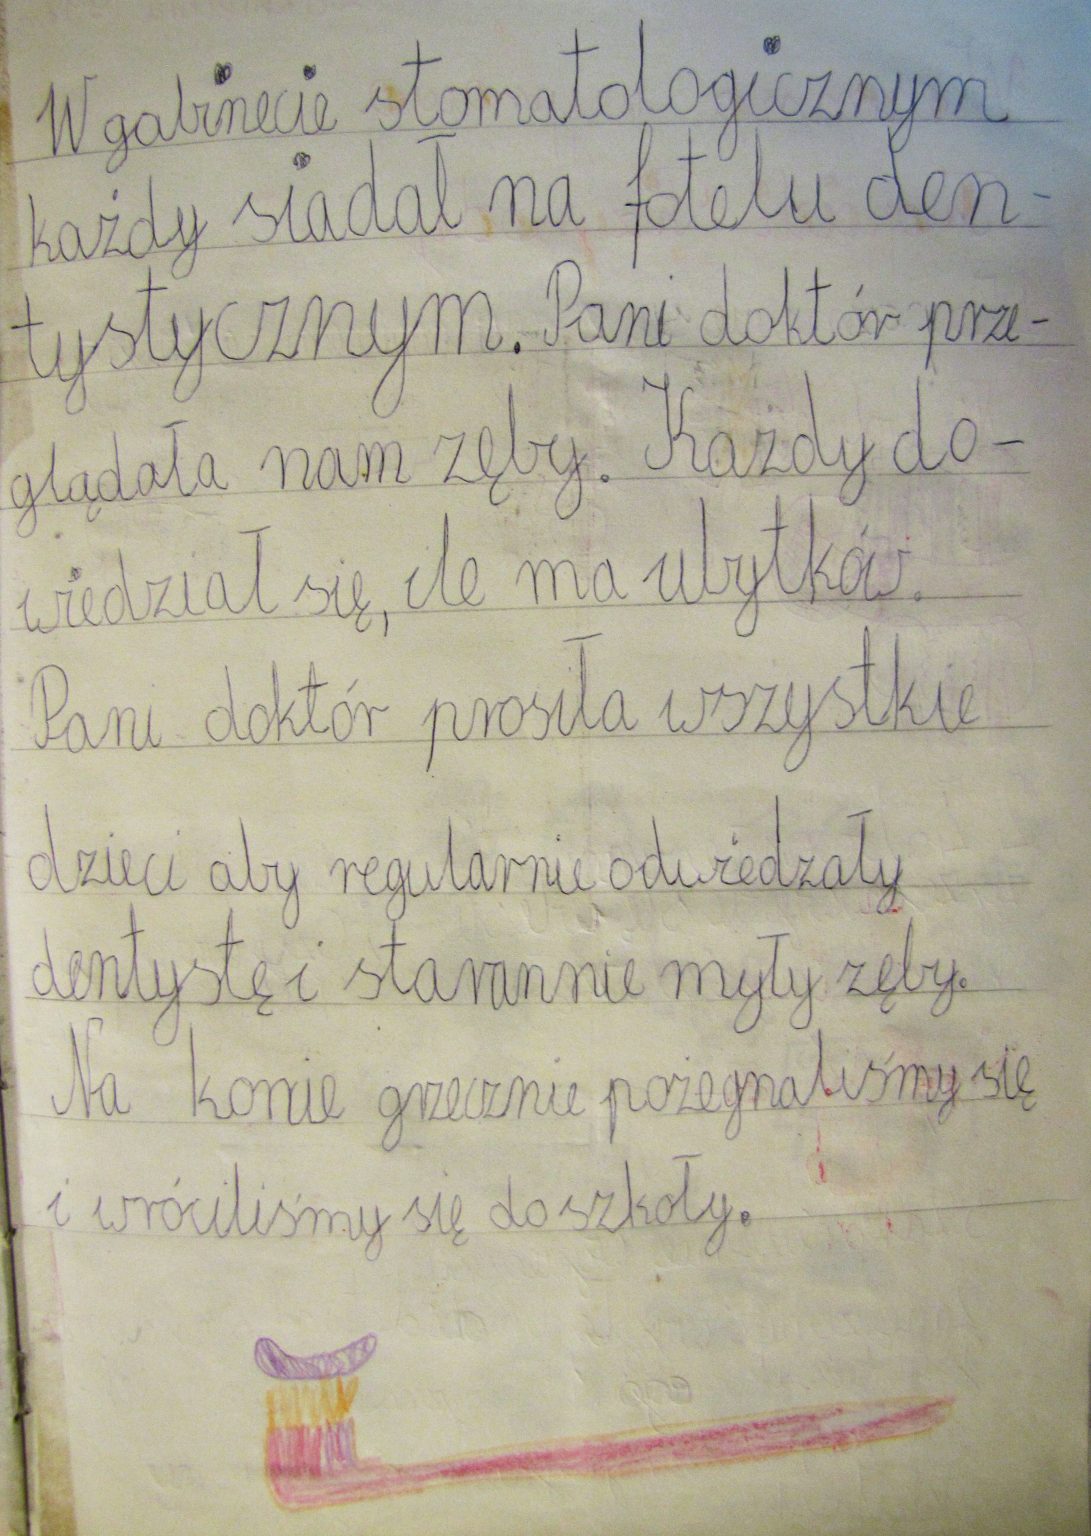 W gabinecie stomatologicznym
każdy siadał na fotelu den-
tystycznym. Pani doktór prze-
glądała nam zęby. Każdy do-
wiedział się, ile ma ubytków.
Pani doktór prosiła wszystkie
dzieci aby regularnie odwiedzały
dentystę i starannie myły zęby.
Na konie grzecznie pożegnaliśmy się
i wróciliśmy się do szkoły.